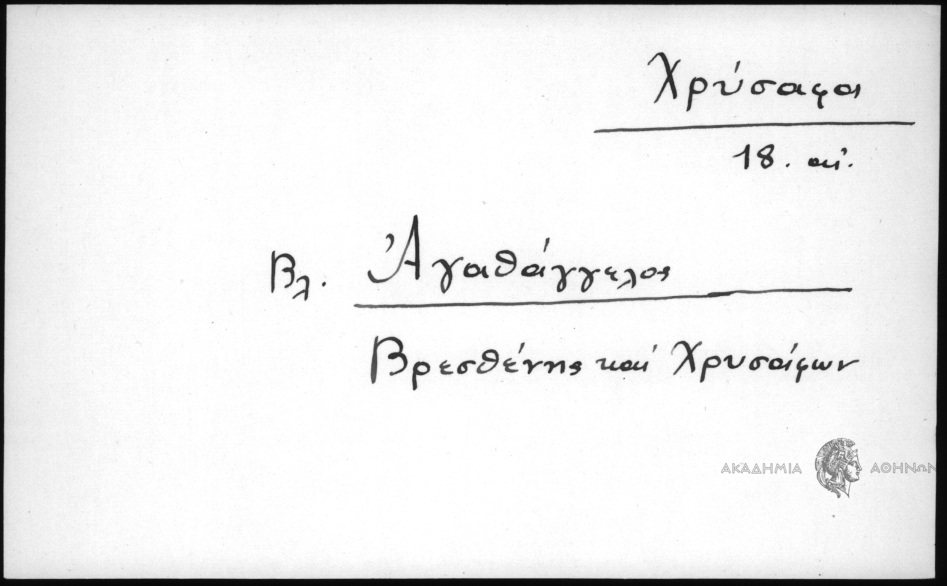 Χρύσαφα
18. αἰ.
Βλ. Ἀγαθάγγελος
Βρεσθένης καὶ Χρυσάφων
ΑΚΑΔΗΜΙΑ ΑΘΗΝΩΝ